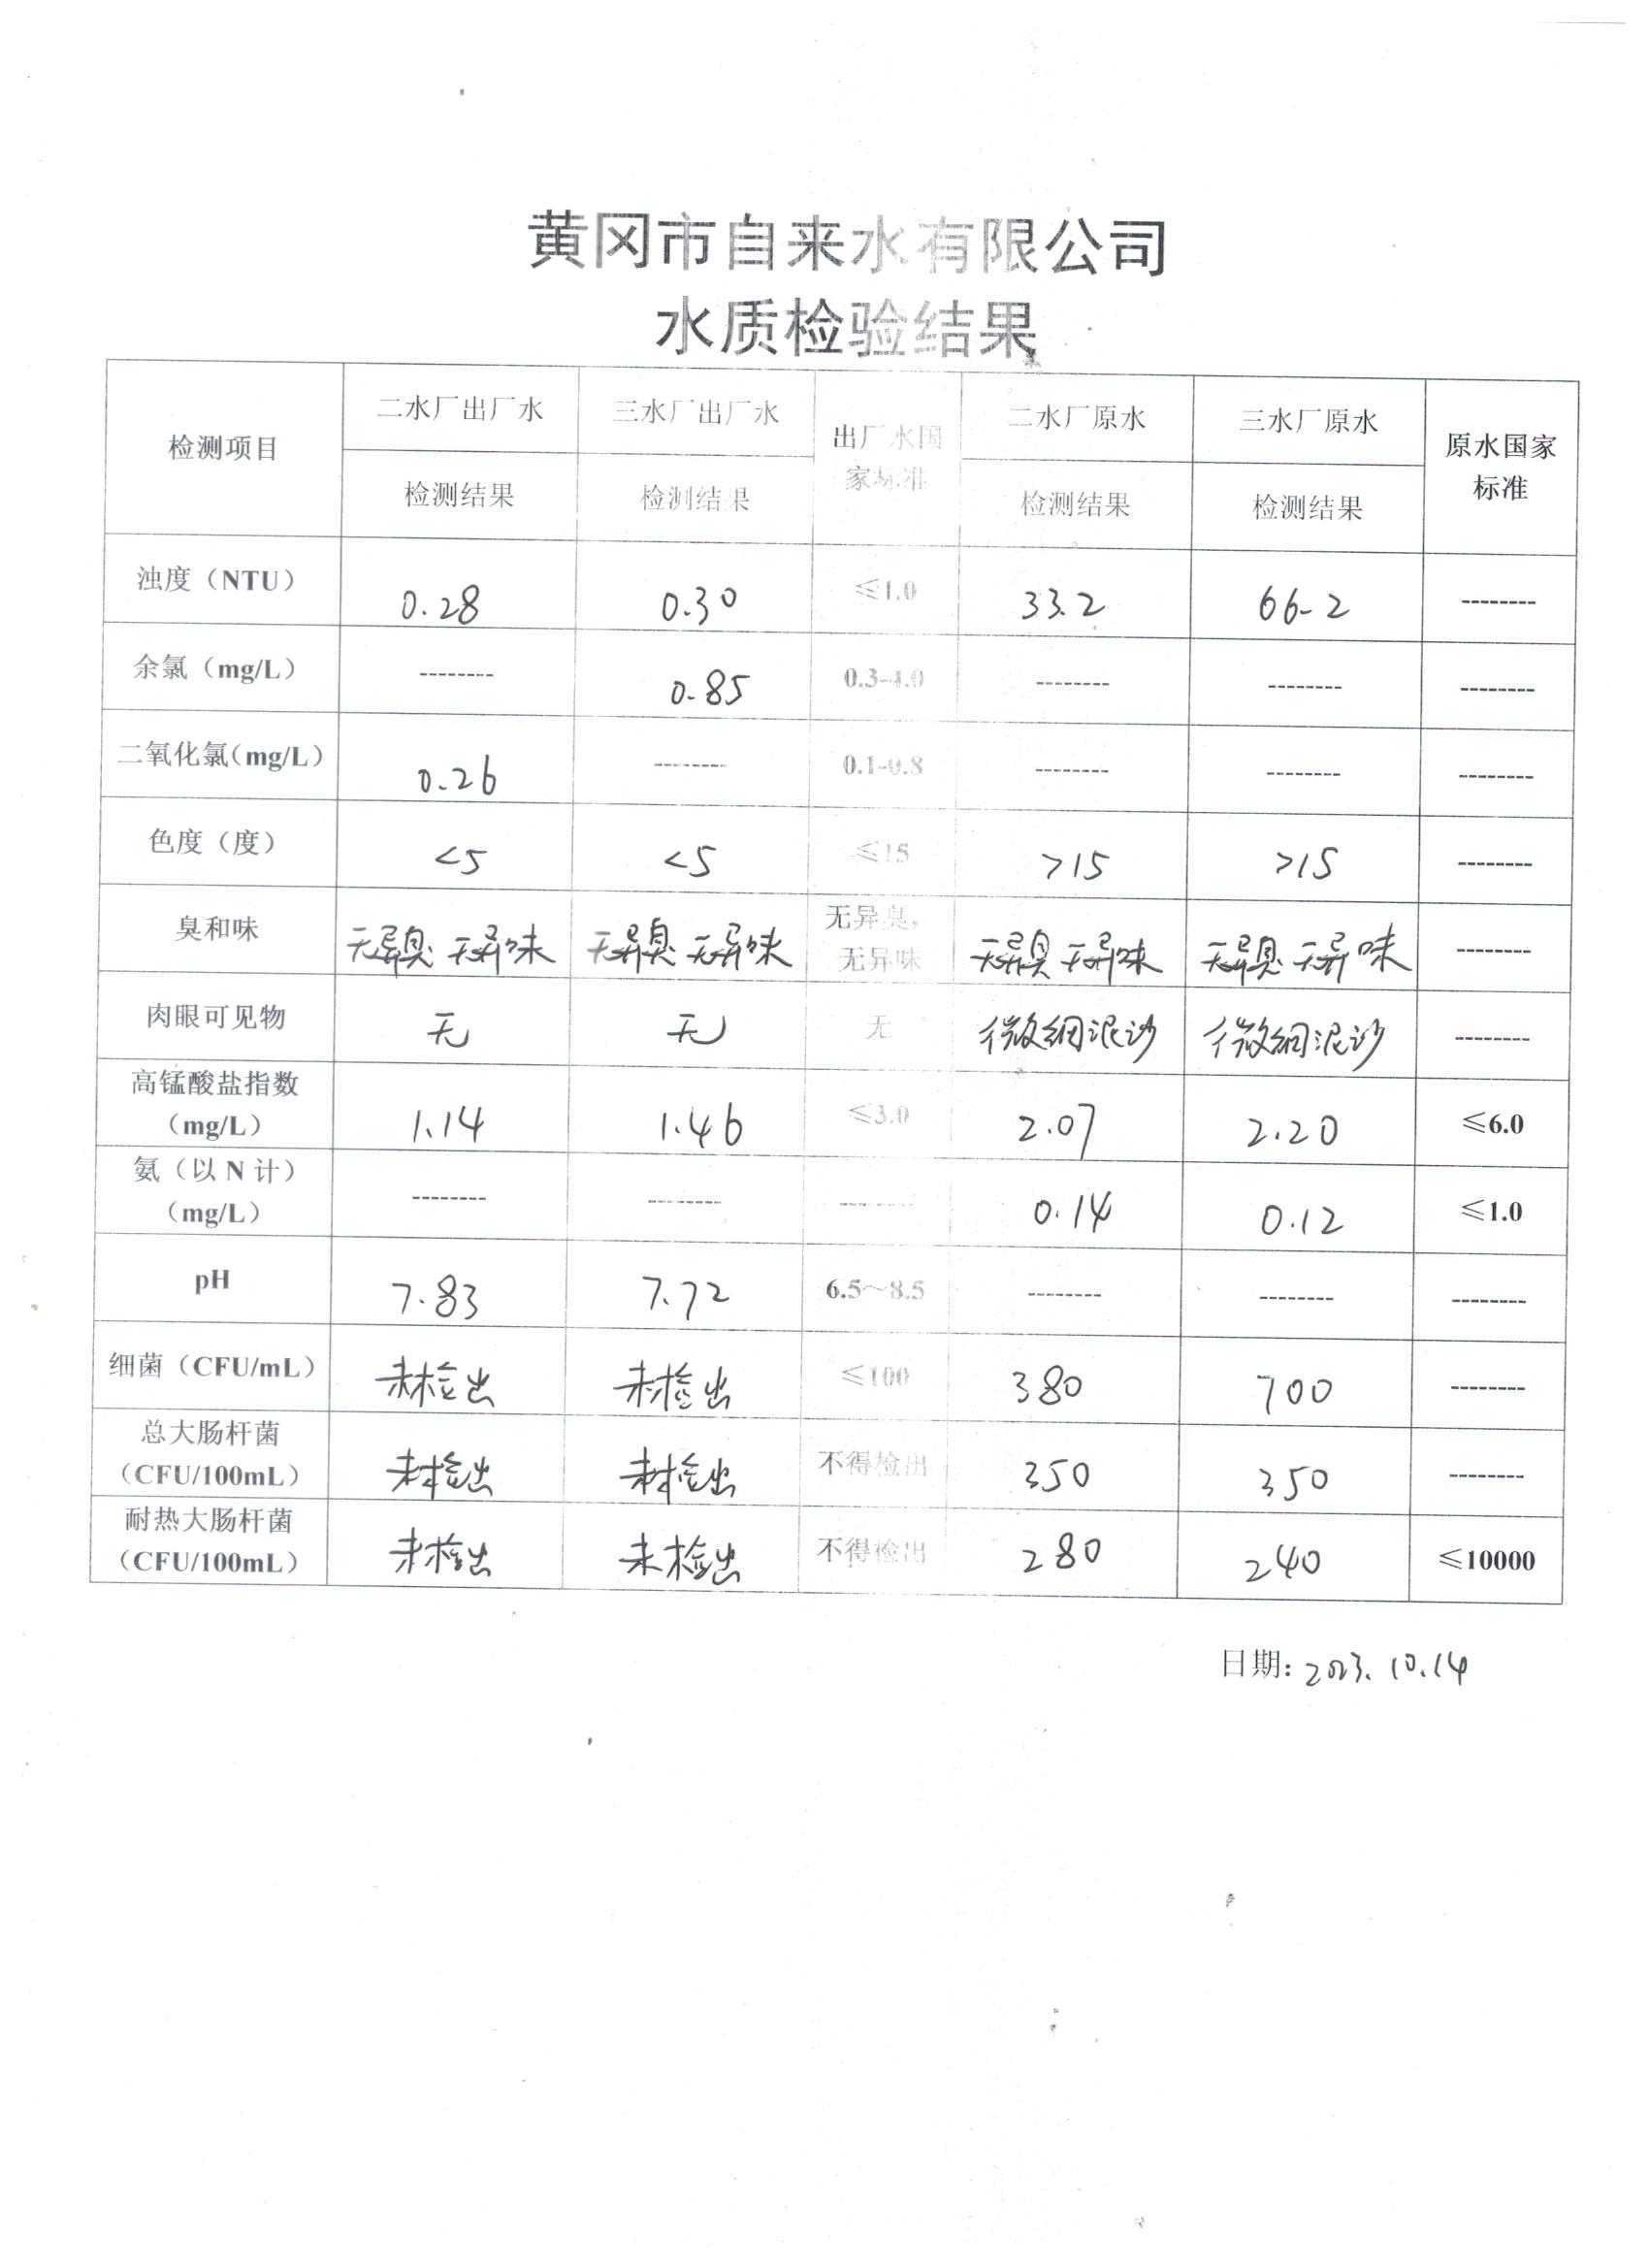 黄冈市自来水有限公司
水质检验结果
检测项目 二水厂出厂水 三水厂出厂水 出厂水国家标准 二水厂原水 三水厂原水 原水国家标准
检测结果 检测结果 检测结果 检测结果
浊度（NTU） 0.28 0.30 ≤1.0 33.2 66.2 --------
余氯（mg/L） -------- 0.85 0.3-4.0 -------- -------- --------
二氧化氯(mg/L) 0.26 -------- 0.1-0.8 -------- -------- --------
色度（度） <5 <5 ≤15 >15 >15 --------
臭和味 无异臭 无异味 无异臭 无异味 无异臭，无异味 无异臭 无异味 无异臭 无异味 --------
肉眼可见物 无 无 无 微细泥沙 微细泥沙 --------
高锰酸盐指数（mg/L） 1.14 1.46 ≤3.0 2.07 2.20 ≤6.0
氨（以 N 计）（mg/L） -------- -------- -------- 0.14 0.12 ≤1.0
pH 7.83 7.72 6.5～8.5 -------- -------- --------
细菌（CFU/mL） 未检出 未检出 ≤100 380 700 --------
总大肠杆菌（CFU/100mL） 未检出 未检出 不得检出 350 350 --------
耐热大肠杆菌（CFU/100mL） 未检出 未检出 不得检出 280 240 ≤10000
日期: 2023.10.14